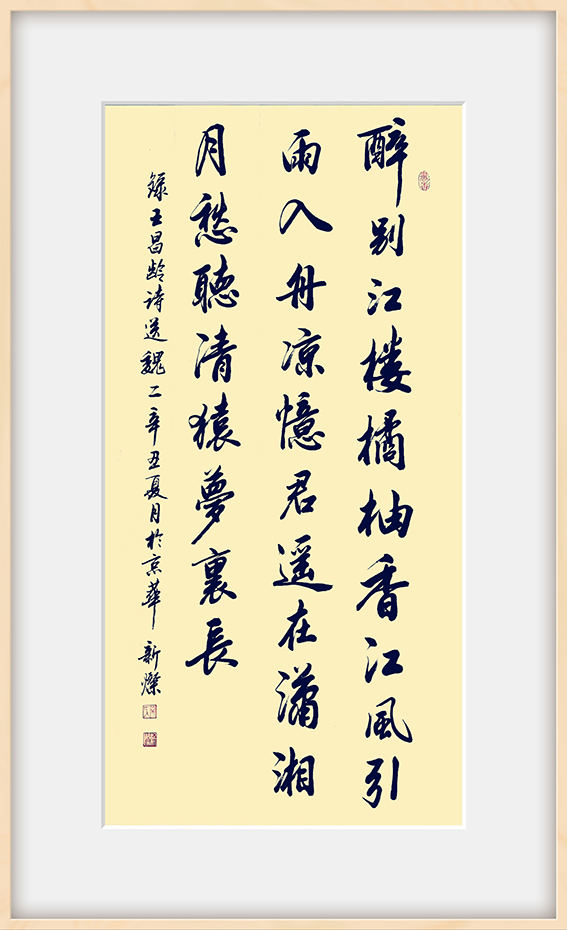 醉别江楼橘柚香江風引
雨入舟凉憶君遥在瀟湘
月愁聽清猿夢裏長
録王昌龄诗送魏二辛丑夏月於京華 新燦